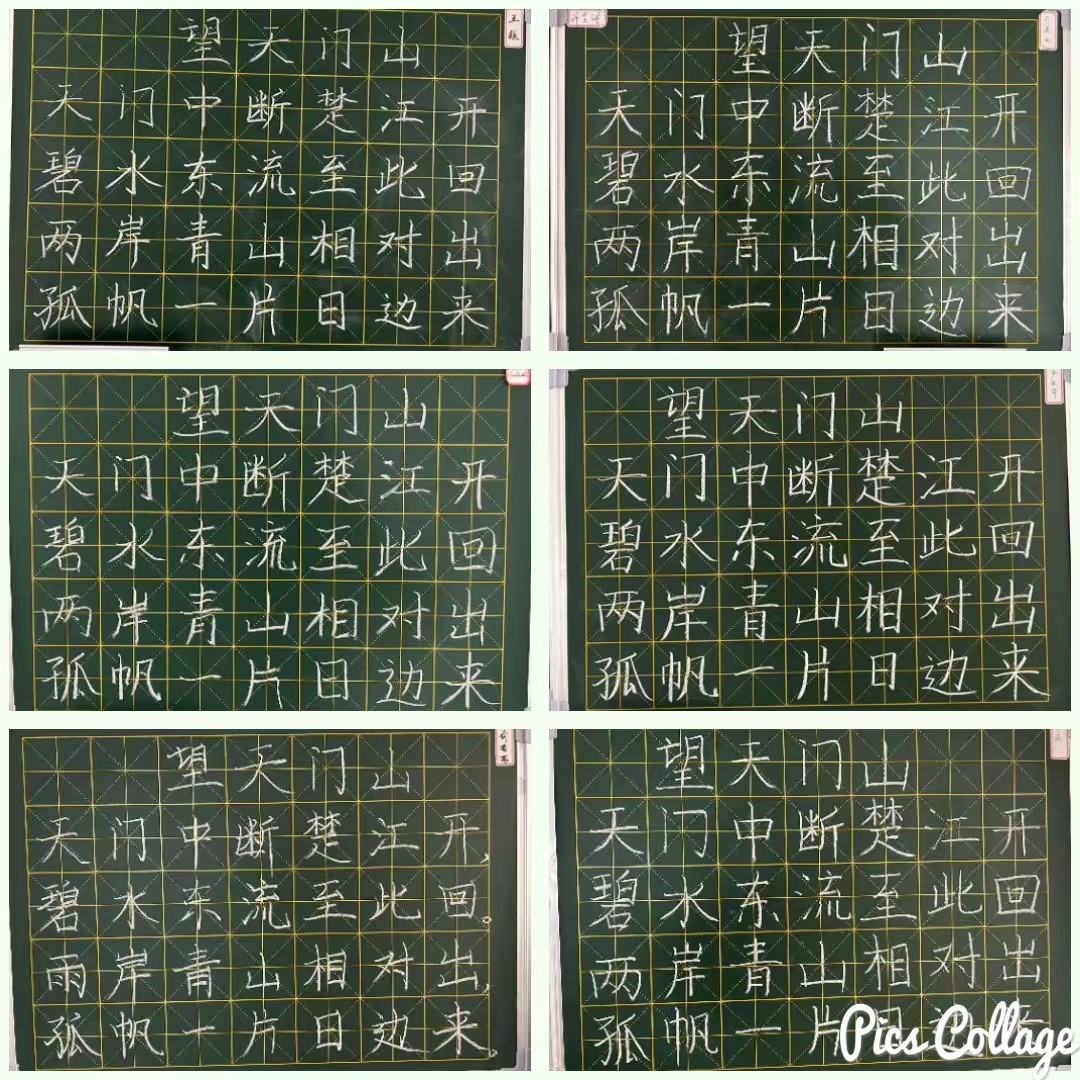 望天门山
天门中断楚江开
碧水东流至此回
两岸青山相对出
孤帆一片日边来
望天门山
天门中断楚江开
碧水东流至此回
两岸青山相对出
孤帆一片日边来
望天门山
天门中断楚江开
碧水东流至此回
两岸青山相对出
孤帆一片日边来
望天门山
天门中断楚江开
碧水东流至此回
两岸青山相对出
孤帆一片日边来
望天门山
天门中断楚江开，
碧水东流至此回。
雨岸青山相对出，
孤帆一片日边来。
望天门山
天门中断楚江开
碧水东流至此回
两岸青山相对出
孤帆一片
Pics Collage